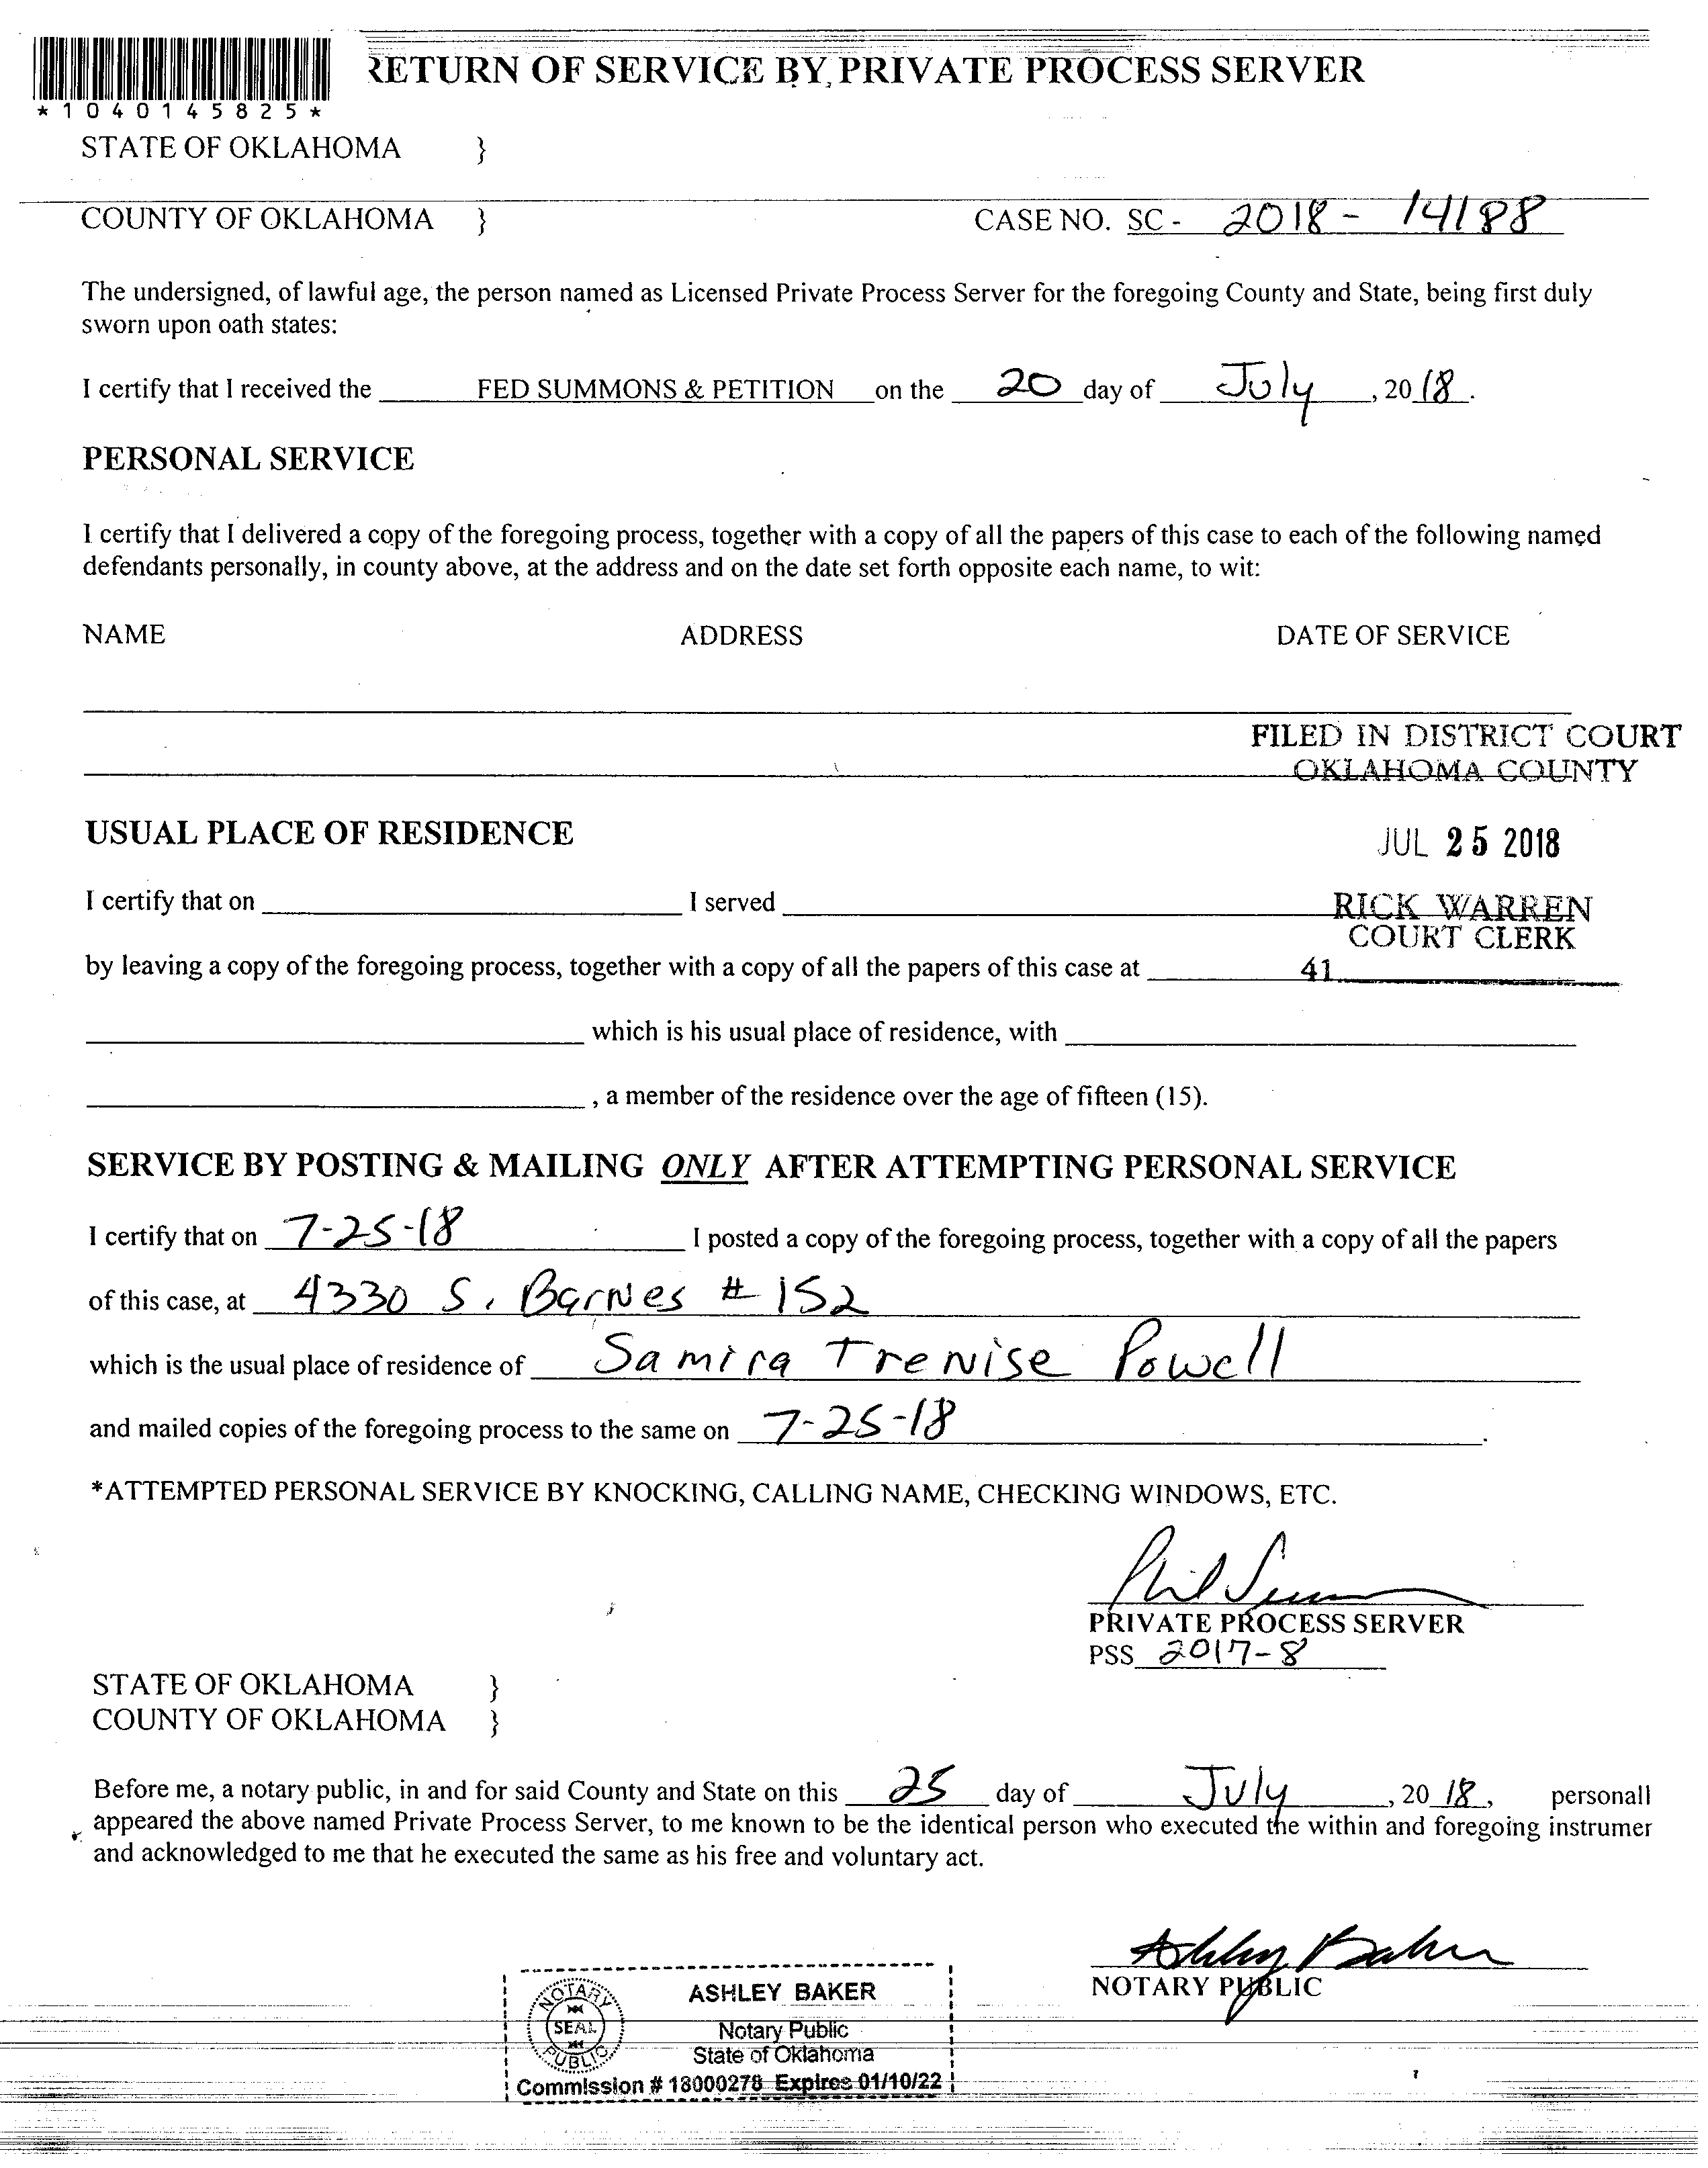 RETURN OF SERVICE BY PRIVATE PROCESS SERVER
*1040145825*
STATE OF OKLAHOMA }
COUNTY OF OKLAHOMA } CASE NO. SC - 2018 - 14188
The undersigned, of lawful age, the person named as Licensed Private Process Server for the foregoing County and State, being first duly
sworn upon oath states:
I certify that I received the FED SUMMONS & PETITION on the 20 day of July, 2018.
PERSONAL SERVICE
I certify that I delivered a copy of the foregoing process, together with a copy of all the papers of this case to each of the following named
defendants personally, in county above, at the address and on the date set forth opposite each name, to wit:
NAME ADDRESS DATE OF SERVICE
FILED IN DISTRICT COURT
OKLAHOMA COUNTY
USUAL PLACE OF RESIDENCE JUL 25 2018
I certify that on I served RICK WARREN
COURT CLERK
by leaving a copy of the foregoing process, together with a copy of all the papers of this case at 41
which is his usual place of residence, with
, a member of the residence over the age of fifteen (15).
SERVICE BY POSTING & MAILING ONLY AFTER ATTEMPTING PERSONAL SERVICE
I certify that on 7-25-18 I posted a copy of the foregoing process, together with a copy of all the papers
of this case, at 4330 S. Barnes # 152
which is the usual place of residence of Samira Trenise Powell
and mailed copies of the foregoing process to the same on 7-25-18.
*ATTEMPTED PERSONAL SERVICE BY KNOCKING, CALLING NAME, CHECKING WINDOWS, ETC.
Phil
PRIVATE PROCESS SERVER
PSS 2017-8
STATE OF OKLAHOMA }
COUNTY OF OKLAHOMA }
Before me, a notary public, in and for said County and State on this 25 day of July, 2018, personall
appeared the above named Private Process Server, to me known to be the identical person who executed the within and foregoing instrumer
and acknowledged to me that he executed the same as his free and voluntary act.
Ashley Baker
NOTARY PUBLIC
NOTARY SEAL PUBLIC
ASHLEY BAKER
Notary Public
State of Oklahoma
Commission # 18000278 Expires 01/10/22